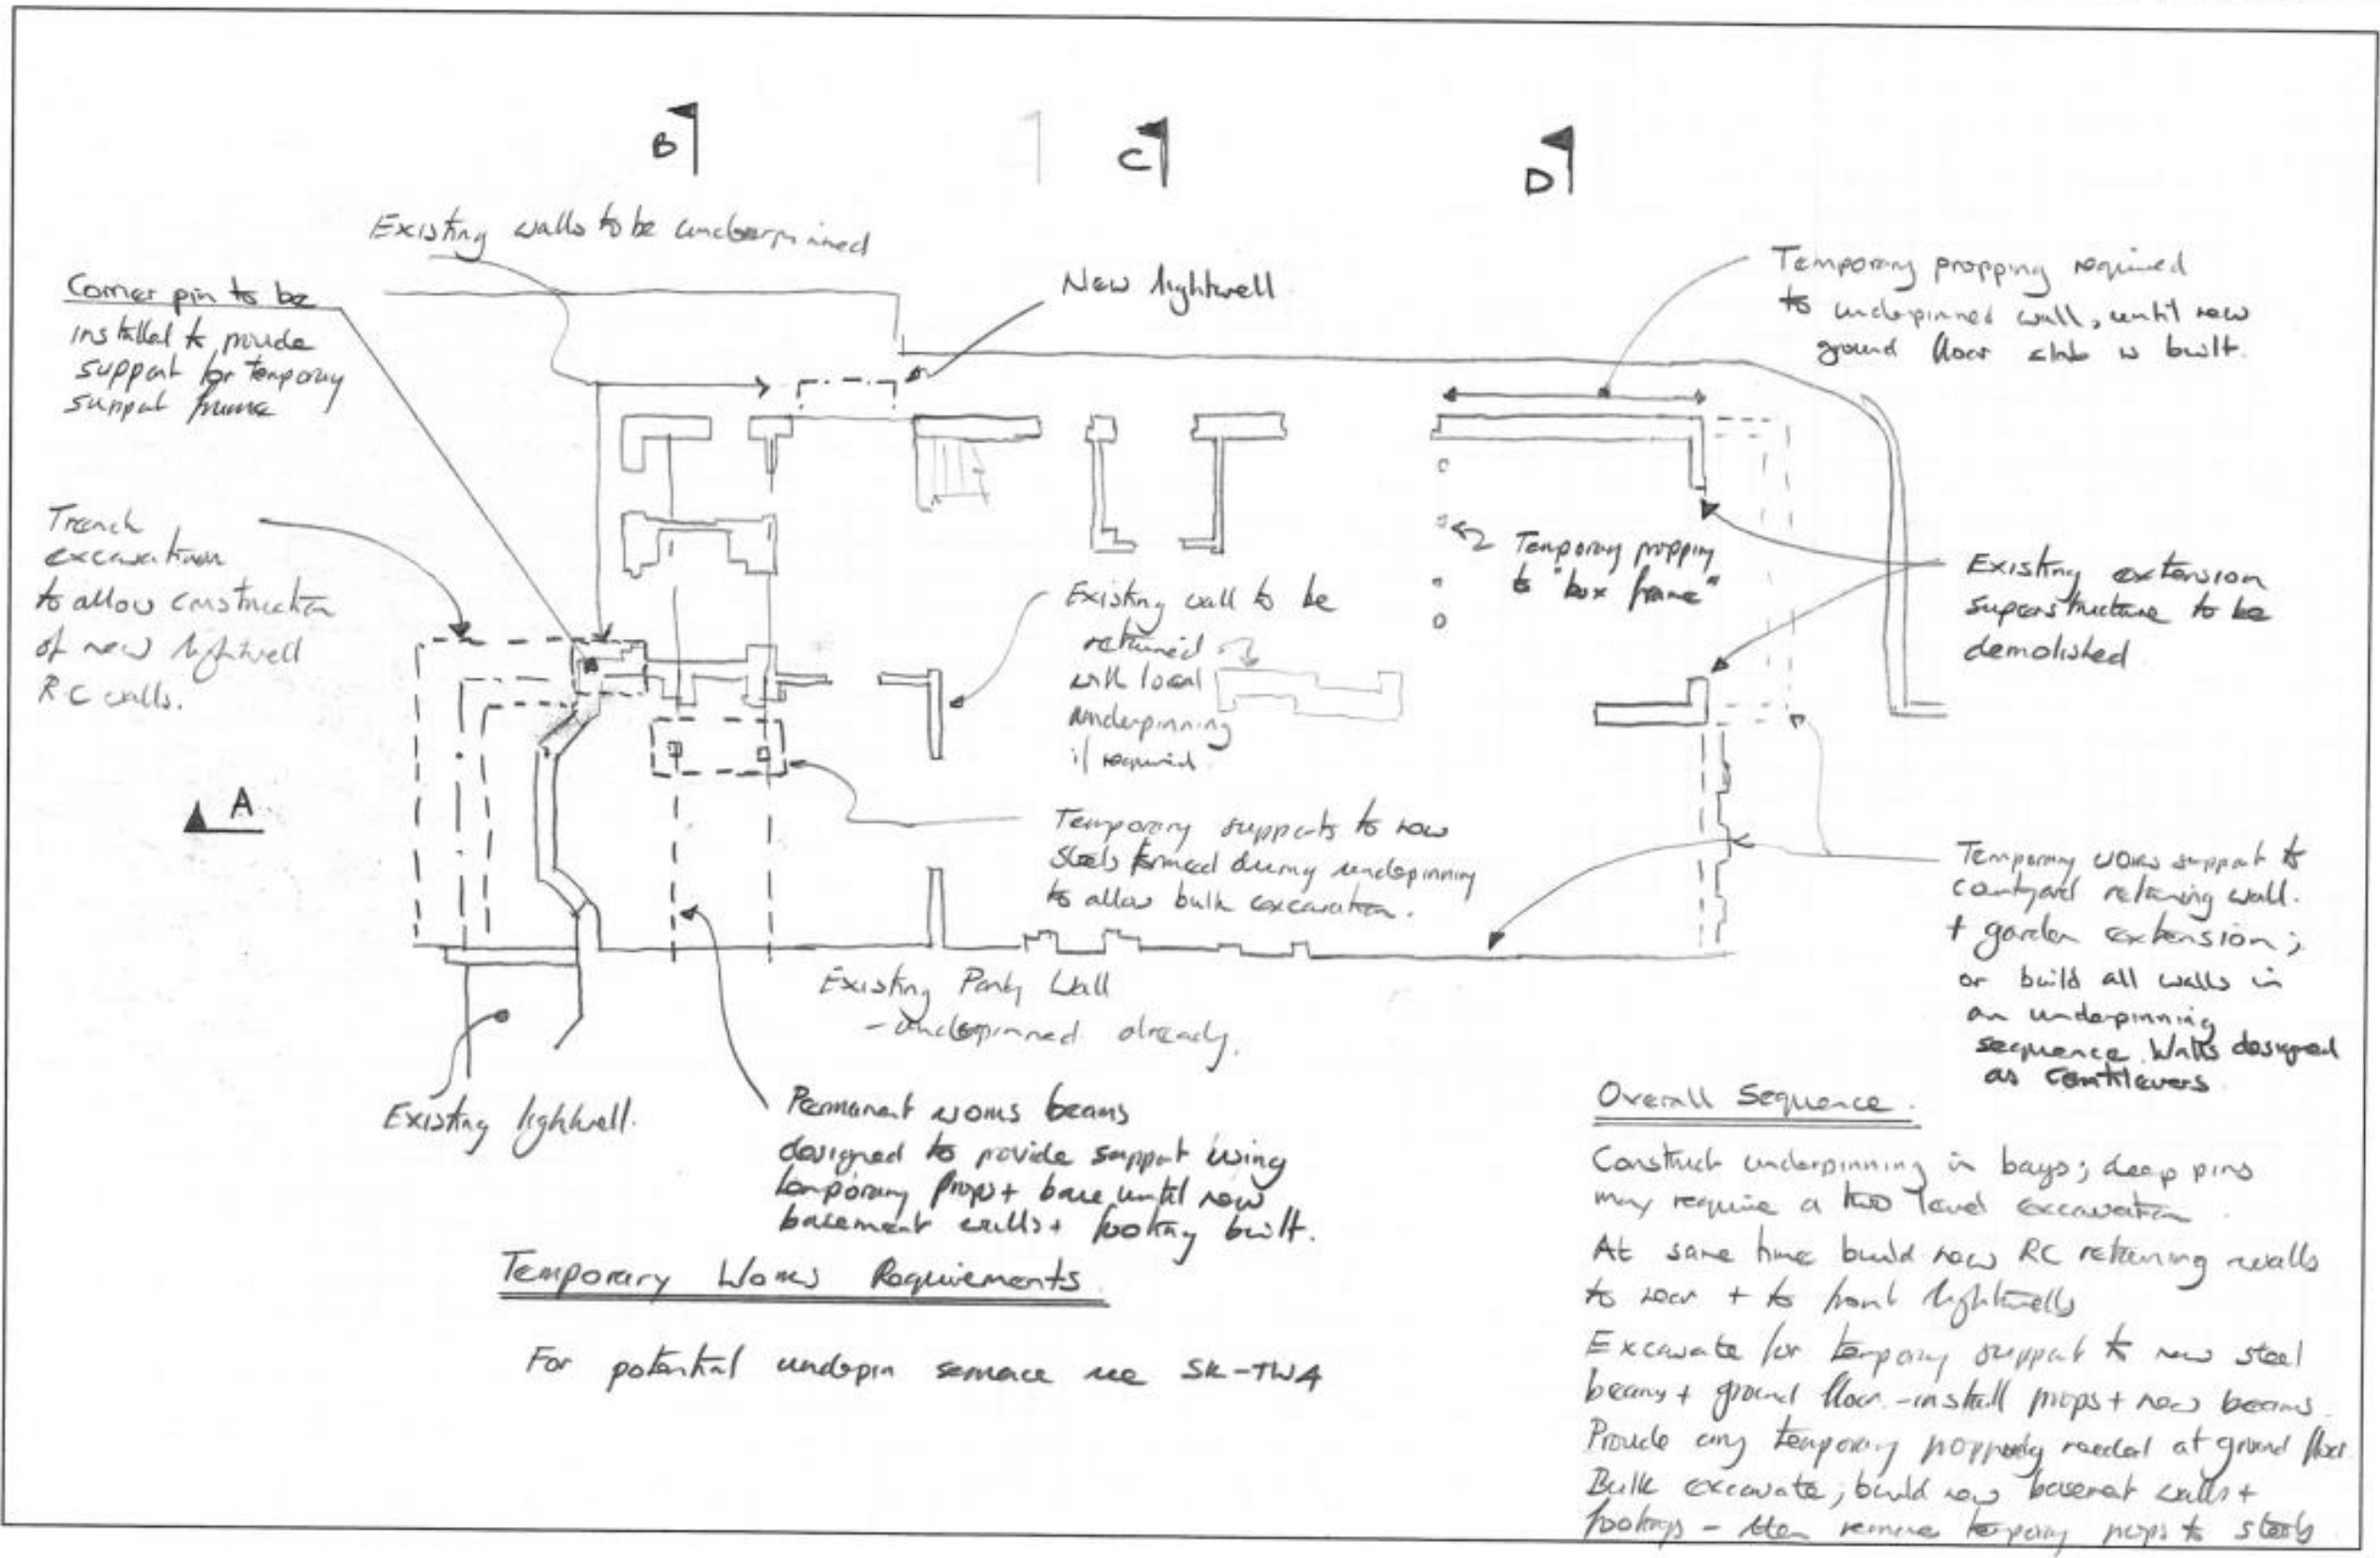 B
C
D
Existing walls to be underpinned
Corner pin to be
installed to provide
support for temporary
support frame
New lightwell
Temporary propping required
to underpinned wall, until new
ground floor slab is built.
Trench
excavation
to allow construction
of new lightwell
RC walls.
Temporary propping
to "box frame"
Existing extension
superstructure to be
demolished
Existing wall to be
retained
with local
underpinning
if required
A
Temporary supports to new
steels formed during underpinning
to allow bulk excavation.
Temporary works support to
courtyard retaining wall.
+ garden extension;
or build all walls in
an underpinning
sequence. Walls designed
as cantilevers
Existing Party Wall
- underpinned already.
Existing lightwell.
Permanent works beams
designed to provide support using
temporary props + base until new
basement walls + footing built.
Temporary Works Requirements
For potential underpin see SK-TW4
Overall Sequence.
Construct underpinning in bays; deep pins
may require a two level excavation.
At same time build new RC retaining walls
to rear + to front lightwells
Excavate for temporary support to new steel
beams + ground floor - install props + new beams.
Provide any temporary propping needed at ground floor
Bulk excavate; build new basement walls +
footings - then remove temporary props to steels